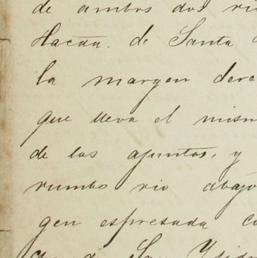 de ambos dos rio
Hacda. de Santa
la margen dere
que lleva el mism
de las apuntas, y
rumbo rio abajo
gen espresada co
de San Ysidr